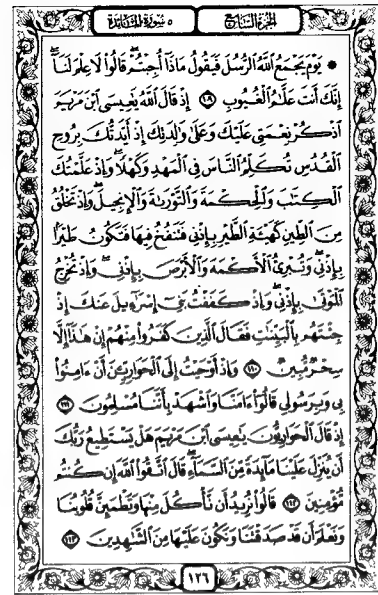 الجزء السابع
٥ سورة المائدة
يوم يجمع الله الرسل فيقول ماذا أجبتم قالوا لا علم لنا
إنك أنت علم الغيوب ١٠٩ إذ قال الله يعيسى ابن مريم
اذكر نعمتي عليك وعلى ولدتك إذ أيدتك بروح
القدس تكلم الناس في المهد وكهلا وإذ علمتك
الكتب والحكمة والتورىة والإنجيل وإذ تخلق
من الطين كهيئة الطير بإذني فتنفخ فيها فتكون طيرا
بإذني وتبرئ الأكمه والأبرص بإذني وإذ تخرج
الموتى بإذني وإذ كففت بني إسرءيل عنك إذ
جئتهم بالبينت فقال الذين كفروا منهم إن هذا إلا
سحر مبين ١١٠ وإذ أوحيت إلى الحوارين أن ءامنوا
بي وبرسولي قالوا ءامنا واشهد بأننا مسلمون ١١١
إذ قال الحواريون يعيسى ابن مريم هل يستطيع ربك
أن ينزل علينا مائدة من السماء قال اتقوا الله إن كنتم
مؤمنين ١١٢ قالوا نريد أن نأكل منها وتطمئن قلوبنا
ونعلم أن قد صدقتنا ونكون عليها من الشهدين ١١٣
١٢٦